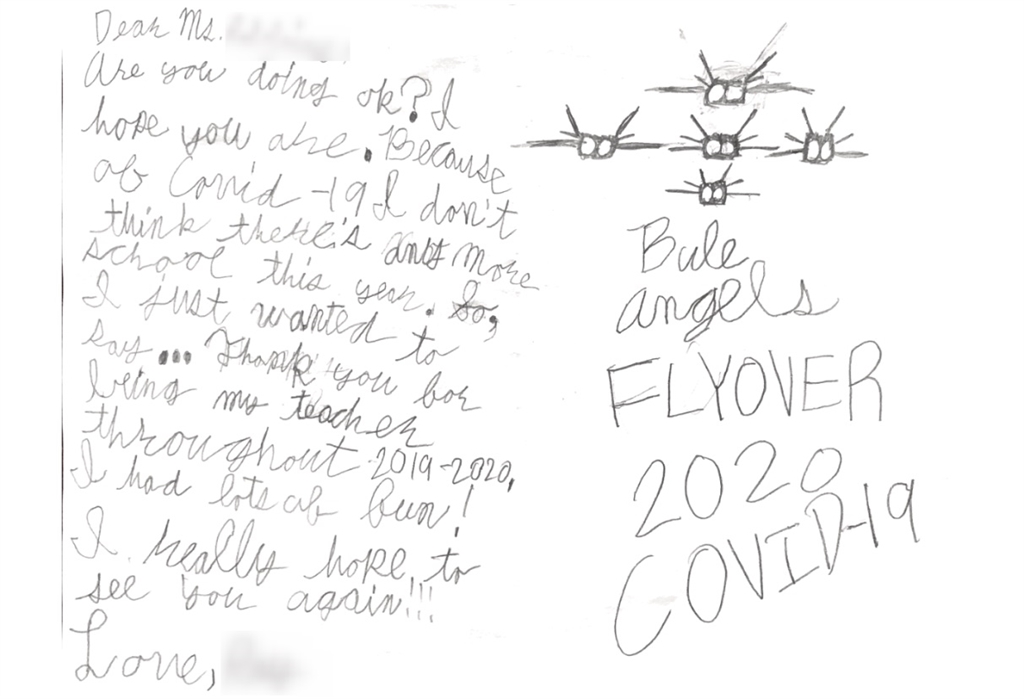 Dear Ms.
Are you doing ok? I
hope you are. Because
of Covid-19 I don't
think there's any more
school this year. So,
I just wanted to
say... Thank you for
being my teacher
throughout 2019-2020.
I had lots of fun!
I really hope to
see you again!!!
Love,
Bule
angels
FLYOVER
2020
COVID-19